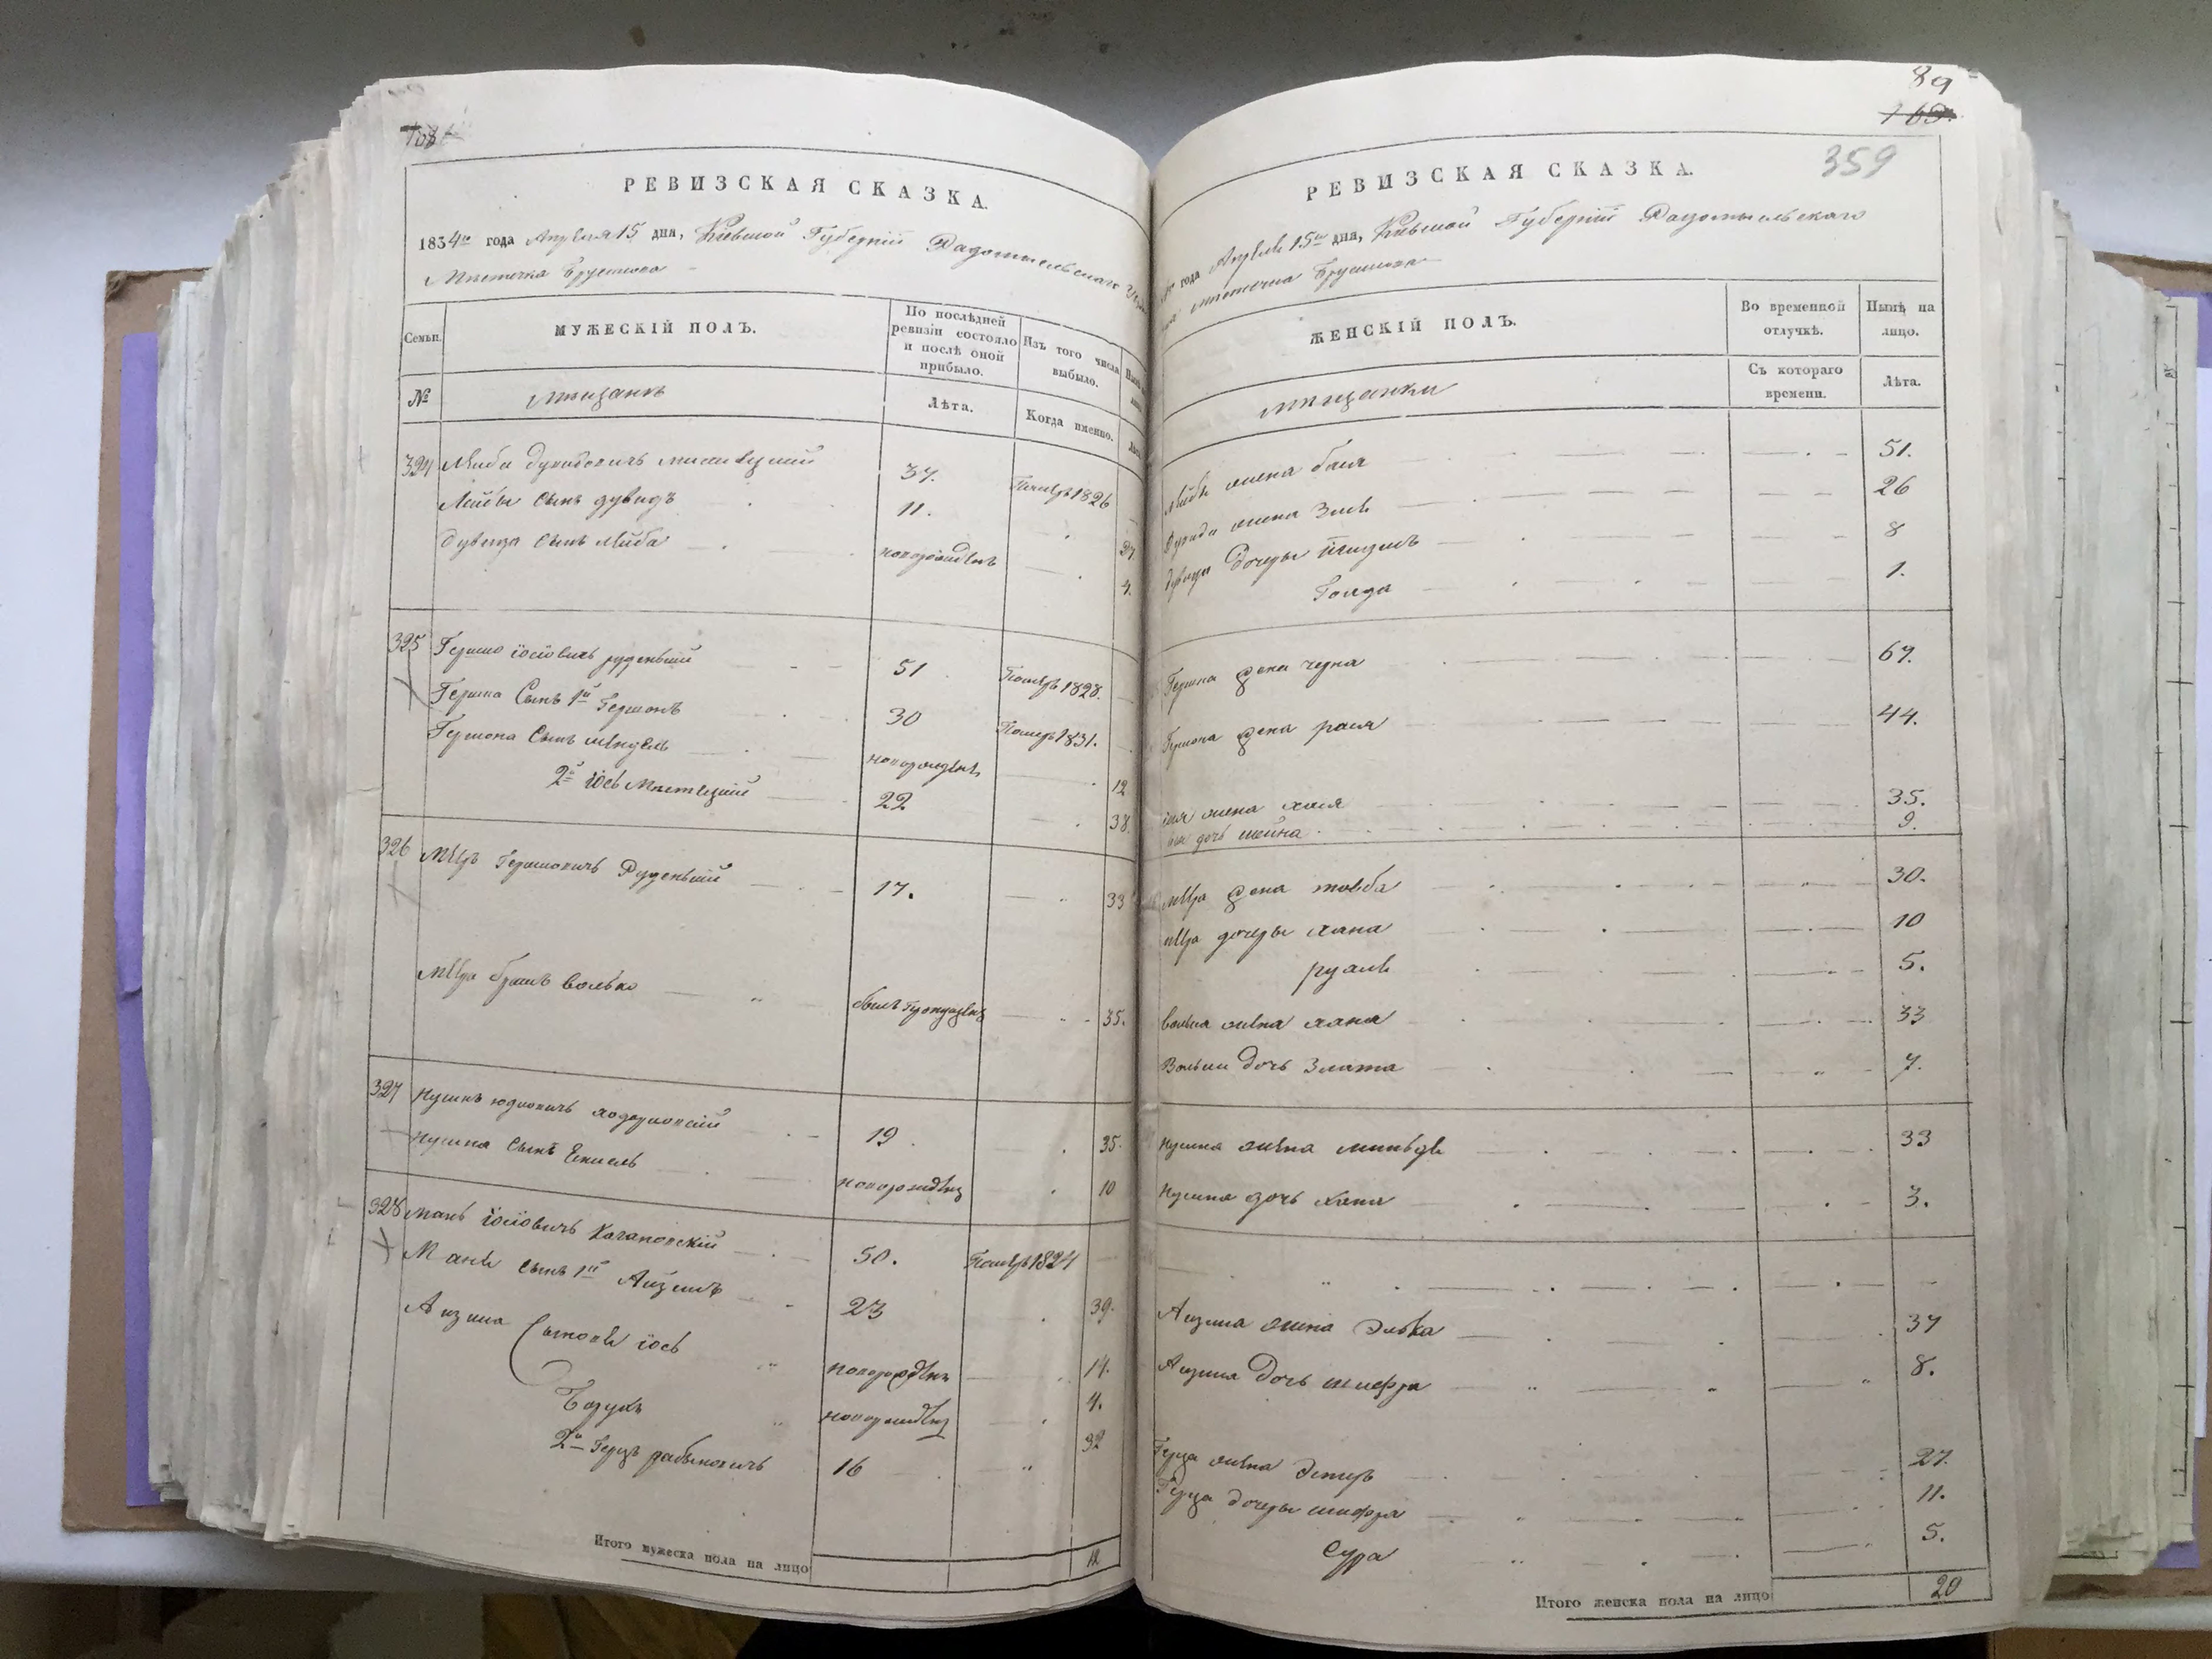 168
РЕВИЗСКАЯ СКАЗКА.
1834го года Апреля 15 дня, Кіевской Губерніи Радомысльскаго
Местечка Брусилова
Семьи.
МУЖЕСКІЙ ПОЛЪ.
По послѣдней ревизіи состояло и послѣ оной прибыло.
Изъ того числа выбыло.
№
мещанъ
Лѣта.
Когда именно.
324 Лейба Дувидовичъ 37. 1826
Лейбы сынъ Дувидъ 11. 27
Дувида сынъ Лейба новорожденъ 4.
325 Гершко Іосіовичъ Руденькій 51 1828.
Гершка Сынъ 1й Гершонъ 30 1831.
Гершона Сынъ Мендель новорожденъ 12
2й Іось 22 38.
326 Мееръ Гершковичъ Руденькій 17. 33
Меера братъ Волько былъ пропущенъ 35.
327 Нусинъ Юдковичъ Ходорковскій 19. 35.
Нусина Сынъ Екиель новорожденъ 10
328 Манъ Іосіовичъ Качановскій 50. 1824
Мани сынъ 1й Айзикъ 23 39.
Айзика Сыновья Іось новорожденъ 14.
Борухъ новорожденъ 4.
2й Герцъ Рабиновичъ 16 32
Итого мужеска пола на лицо 12
89
169.
359
РЕВИЗСКАЯ СКАЗКА.
года Апреля 15го дня, Кіевской Губерніи Радомысльскаго
местечка Брусилова
ЖЕНСКІЙ ПОЛЪ.
Во временной отлучкѣ.
Нынѣ на лицо.
мещанки
Съ котораго времени.
Лѣта.
Лейбы жена Бася 51.
Дувида жена Злата 26
Дувида дочери 8
Голда 1.
Гершка жена Черна 67.
Гершона жена Рася 44.
жена Хая 35.
дочь Шейна 9.
Меера жена Товба 30.
Меера дочери Хана 10
Рухля 5.
Волька жена Хана 33
Волька дочь Злата 7.
Нусина жена 33
Нусина дочь Хана 3.
Айзика жена Элька 37
Айзика дочь Шифра 8.
Герца жена Эстеръ 27.
Герца дочери Шифра 11.
Сура 5.
Итого женска пола на лицо 20